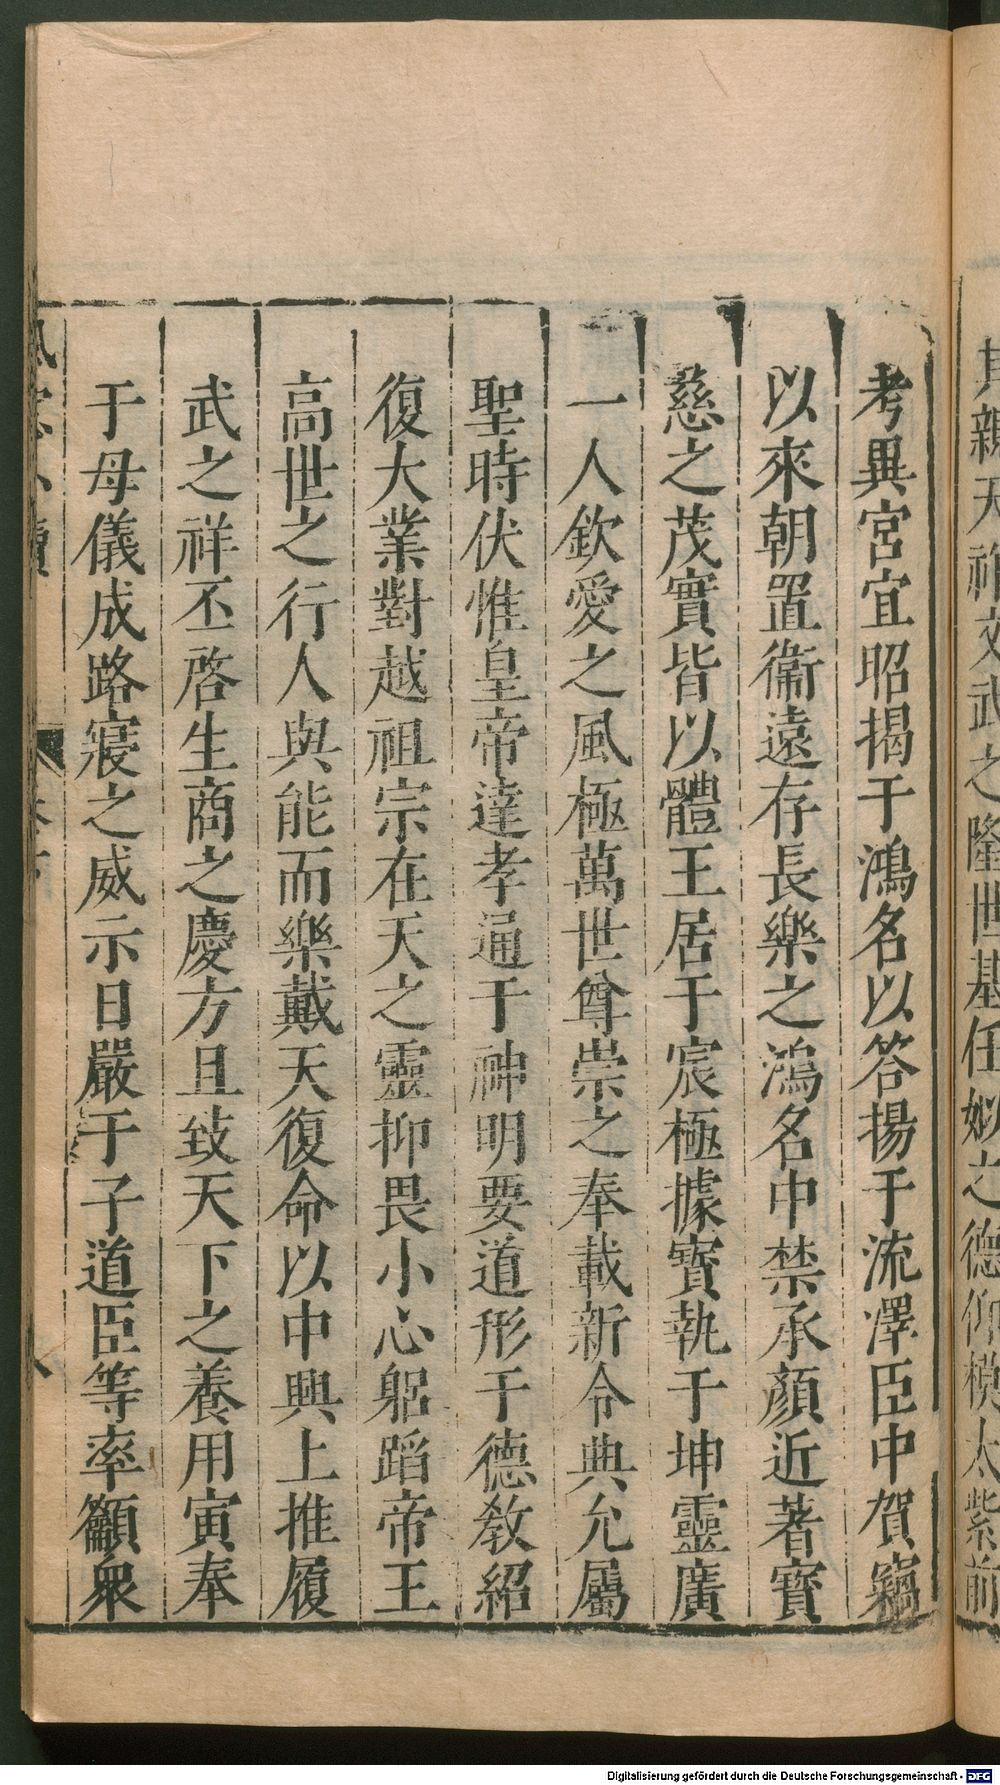 其親天祚文武之隆世基任姒之德仰模太紫前
考異宮宜昭揭于鴻名以答揚于流澤臣中賀竊
以來朝置衞遠存長樂之鴻名中禁承顏近著寶
慈之茂實皆以體王居于宸極據寶執于坤靈廣
一人欽愛之風極萬世尊崇之奉載新令典允屬
聖時伏惟皇帝達孝通于神明要道形于德教紹
復大業對越祖宗在天之靈抑畏小心躬蹈帝王
高世之行人與能而樂戴天復命以中興上推履
武之祥丕啓生商之慶方且致天下之養用寅奉
于母儀成路寢之威示日嚴于子道臣等率籲衆
Digitalisierung gefördert durch die Deutsche Forschungsgemeinschaft - DFG